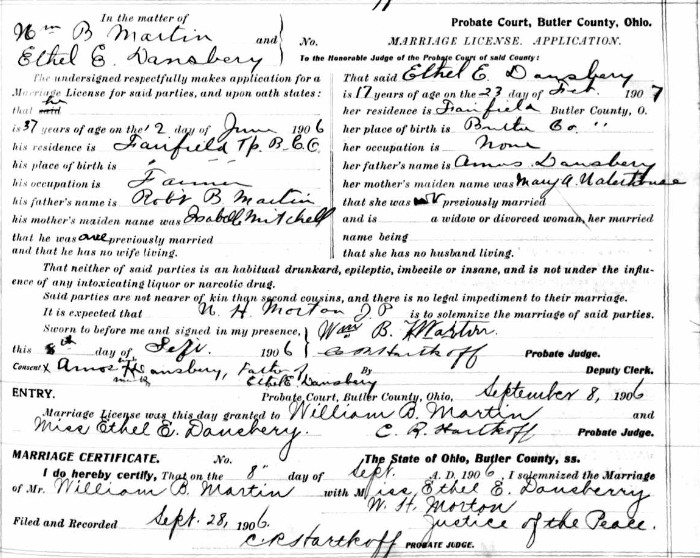 In the matter of
Wm B Martin
and
Ethel E. Dansbery
No.
Probate Court, Butler County, Ohio.
MARRIAGE LICENSE. APPLICATION.
To the Honorable Judge of the Probate Court of said County:
The undersigned respectfully makes application for a
Marriage License for said parties, and upon oath states:
that said he
is 37 years of age on the 2 day of June 1906
his residence is Fairfield Tp. B.C.O.
his place of birth is " " "
his occupation is Farmer
his father's name is Robt B Martin
his mother's maiden name was Isabelle Mitchell
that he was once previously married
and that he has no wife living.
That said Ethel E. Dansbery
is 17 years of age on the 23 day of Feb. 1907
her residence is Fairfield Butler County, O.
her place of birth is Butler Co. "
her occupation is None
her father's name is Amos Dansbery
her mother's maiden name was Mary A
that she was not previously married
and is a widow or divorced woman, her married
name being
that she has no husband living.
That neither of said parties is an habitual drunkard, epileptic, imbecile or insane, and is not under the influ-
ence of any intoxicating liquor or narcotic drug.
Said parties are not nearer of kin than second cousins, and there is no legal impediment to their marriage.
It is expected that W. H. Morton J P is to solemnize the marriage of said parties.
Sworn to before me and signed in my presence, Wm B. Martin.
this 8th day of Sept. 1906 C R Hartkoff Probate Judge.
Consent X Amos Dansbery, Father of Ethel E Dansbery By Deputy Clerk.
mark
ENTRY. Probate Court, Butler County, Ohio, September 8, 1906
Marriage License was this day granted to William B. Martin and
Miss Ethel E. Dansbery. C. R. Hartkoff Probate Judge.
MARRIAGE CERTIFICATE. No. The State of Ohio, Butler County, ss.
I do hereby certify, That on the 8" day of Sept. A. D. 1906, I solemnized the Marriage
of Mr. William B. Martin with Miss Ethel E. Dansberry
W. H. Morton
Justice of the Peace.
Filed and Recorded Sept. 28, 1906.
C R Hartkoff PROBATE JUDGE.